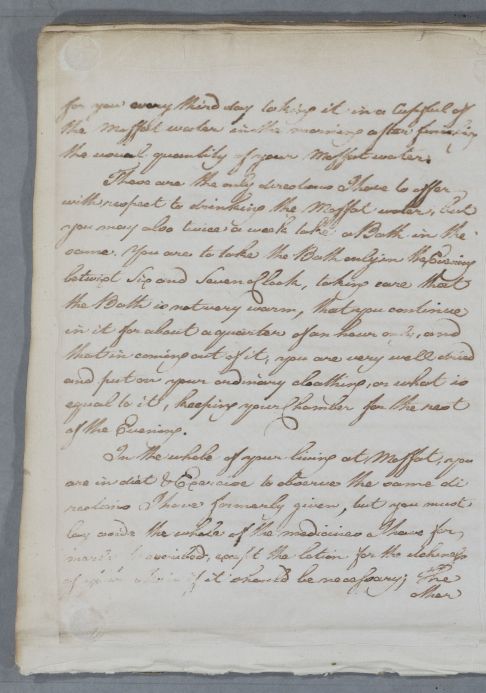 for you every third day taking it in a Cupful of
the Moffat water in the morning after finishing
the usual quantity of your Moffat water.
These are the only directions I have to offer
with respect to drinking the Moffat water, but
you may also twice a week take a Bath in the
same. You are to take the Bath only in the Evening
betwixt Six and Seven aClock, taking care that
the Bath is not very warm, that you continue
in it for about a quarter of an hour only, and
that in coming out of it, you are very well dried
and put on your ordinary cloathing, or what is
equal to it, keeping your Chamber for the rest
of the Evening.
In the whole of your living at Moffat, you
are in diet & Exercise to observe the same di
rections I have formerly given, but you must
lay aside the whole of the medicines I have for
merly prescribed, except the lotion for the itchiness
of your if it should be necessary; The
other